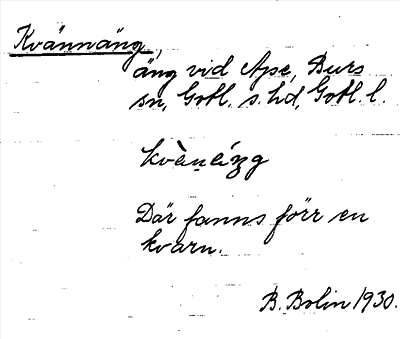 Kvännäng,
äng vid Ape, Burs
sn, Gotl. s. hd, Gotl. l.
Där fanns förr en
kvarn.
B. Bolin 1930.